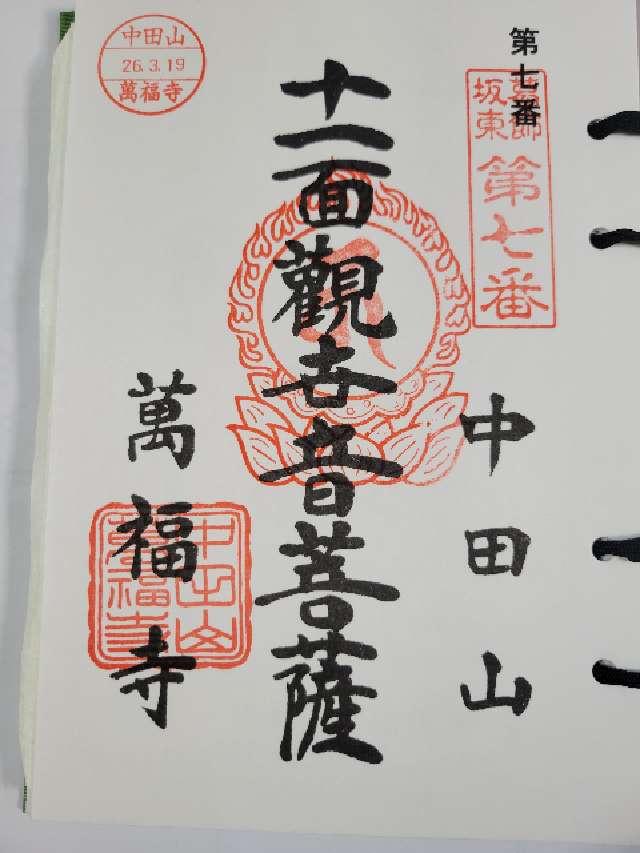 第七番
葛飾
坂東
第七番
中田山
十一面觀世音菩薩
萬福寺
中田山
萬福寺
中田山
26.3.19
萬福寺